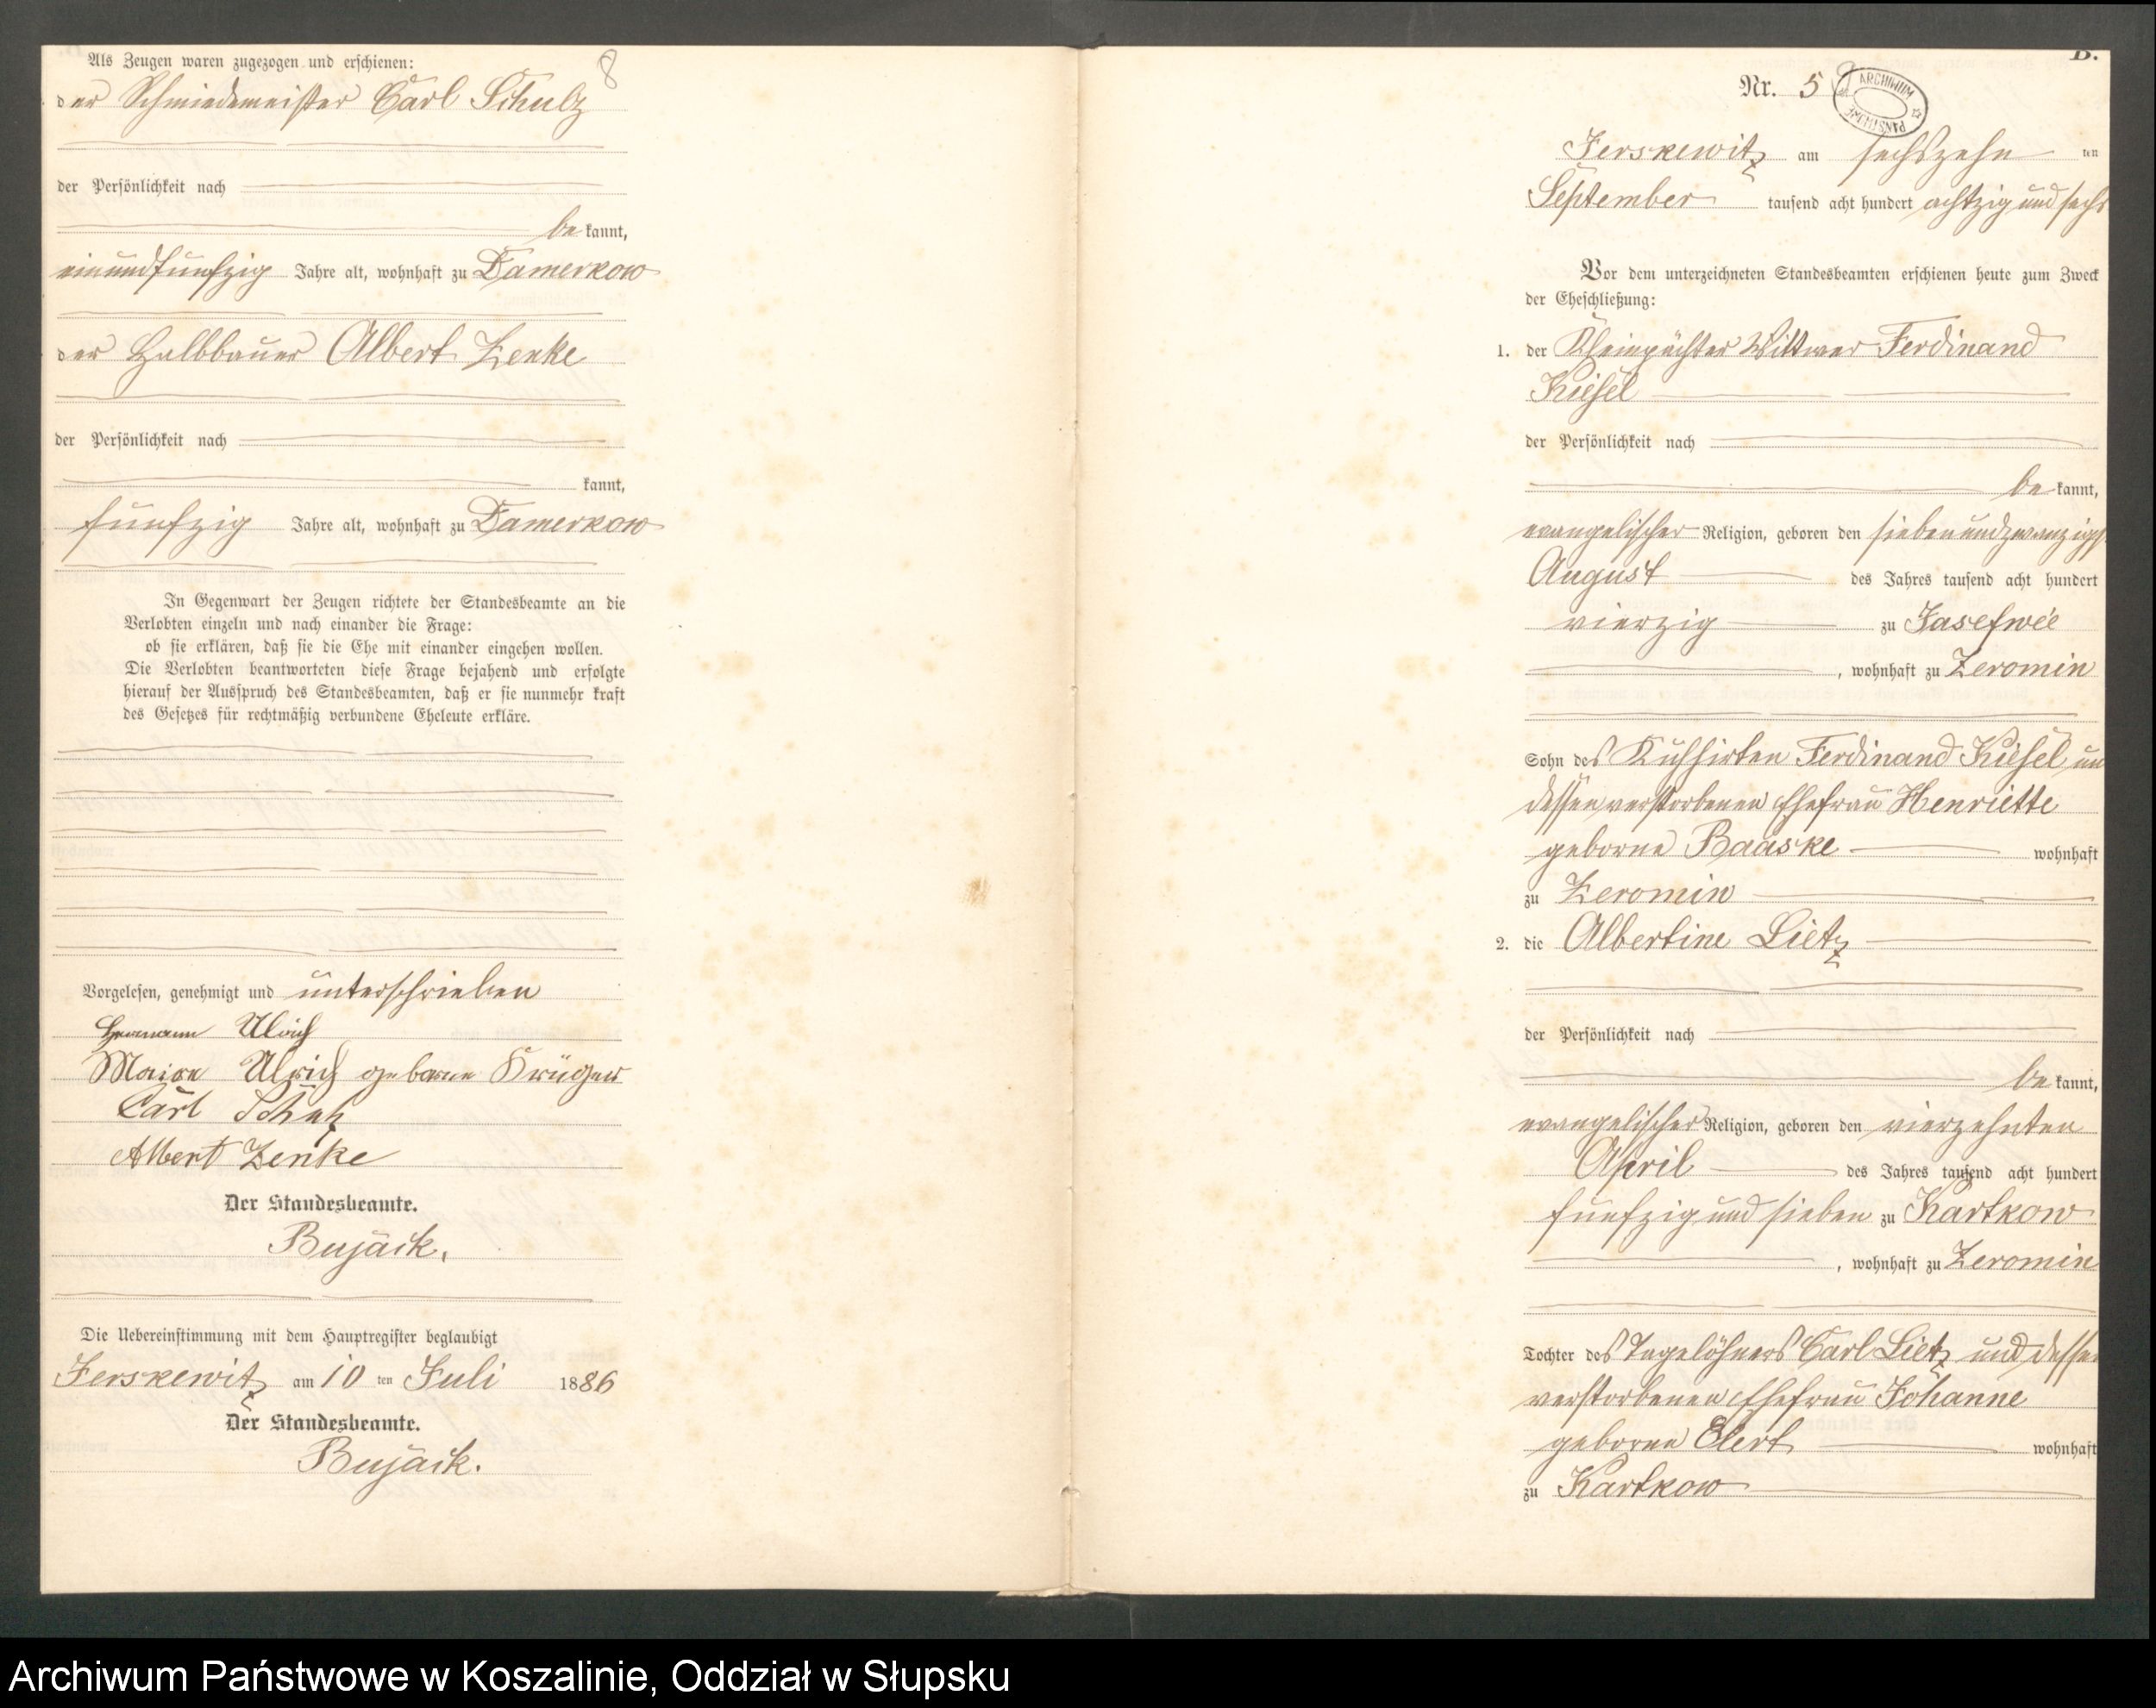 Als Zeugen waren zugezogen und erschienen:
8
der Schmiedemeister Carl Schulz
der Persönlichkeit nach
be kannt,
einundfunfzig Jahre alt, wohnhaft zu Damerkow
der Halbbauer Albert Zenke
der Persönlichkeit nach
kannt,
funfzig Jahre alt, wohnhaft zu Damerkow
In Gegenwart der Zeugen richtete der Standesbeamte an die
Verlobten einzeln und nach einander die Frage:
ob sie erklären, daß sie die Ehe mit einander eingehen wollen.
Die Verlobten beantworteten diese Frage bejahend und erfolgte
hierauf der Ausspruch des Standesbeamten, daß er sie nunmehr kraft
des Gesetzes für rechtmäßig verbundene Eheleute erkläre.
Vorgelesen, genehmigt und unterschrieben
Hermann Ulrich
Ulrich geborne Krüger
Carl
Albert Zenke
Der Standesbeamte.
Bujäck.
Die Uebereinstimmung mit dem Hauptregister beglaubigt
Jerskewitz am 10 ten Juli 1886
Der Standesbeamte.
Bujäck.
B.
Nr. 5
9
ARCHIWUM PAŃSTWOWE
Jerskewitz am sechszehn ten
September tausend acht hundert achtzig und sechs
Vor dem unterzeichneten Standesbeamten erschienen heute zum Zweck
der Eheschließung:
1. der Wittwer Ferdinand
Kiesel
der Persönlichkeit nach
be kannt,
evangelischer Religion, geboren den siebenundzwanzigst
August des Jahres tausend acht hundert
vierzig zu Jasefwee
, wohnhaft zu Zeromin
Sohn des Kuhhirten Ferdinand Kiesel un
dessen verstorbenen Ehefrau Henriette
geborne Baaske wohnhaft
zu Zeromin
2. die Albertine Lietz
der Persönlichkeit nach
be kannt,
evangelischer Religion, geboren den vierzehnten
April des Jahres tausend acht hundert
funfzig und sieben zu Kartkow
, wohnhaft zu Zeromin
Tochter des Tagelöhners Carl Lietz und dessen
verstorbenen Ehefrau Johanne
geborne Elert wohnhaft
zu Kartkow
Archiwum Państwowe w Koszalinie, Oddział w Słupsku